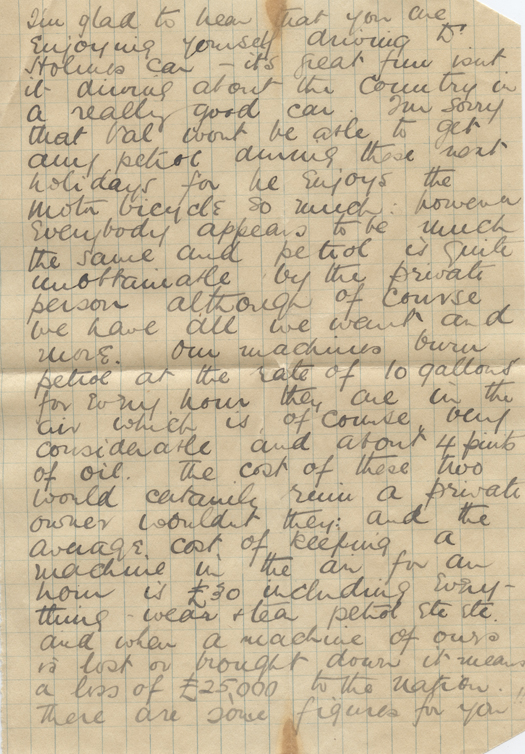 I'm glad to hear that you are
Enjoying yourself driving Dr
Holmes car - its great fun isnt
it driving about the country in
a really good car. I'm sorry
that Val wont be able to get
any petrol during these next
holidays for he Enjoys the
motor bicycle so much: however
Everybody appears to be much
the same and petrol is quite
unobtainable by the private
person although of course
we have all we want and
more. Our machines burn
petrol at the rate of 10 gallons
for Every hour they are in the
air which is, of course, very
considerable and about 4 pints
of oil. The cost of these two
would certainly ruin a private
owner wouldnt they: and the
average cost of keeping a
machine in the air for an
hour is £30 including Every-
thing - wear & tear petrol etc etc.
and when a machine of ours
is lost or brought down it means
a loss of £25,000 to the nation.
there are some figures for you!!